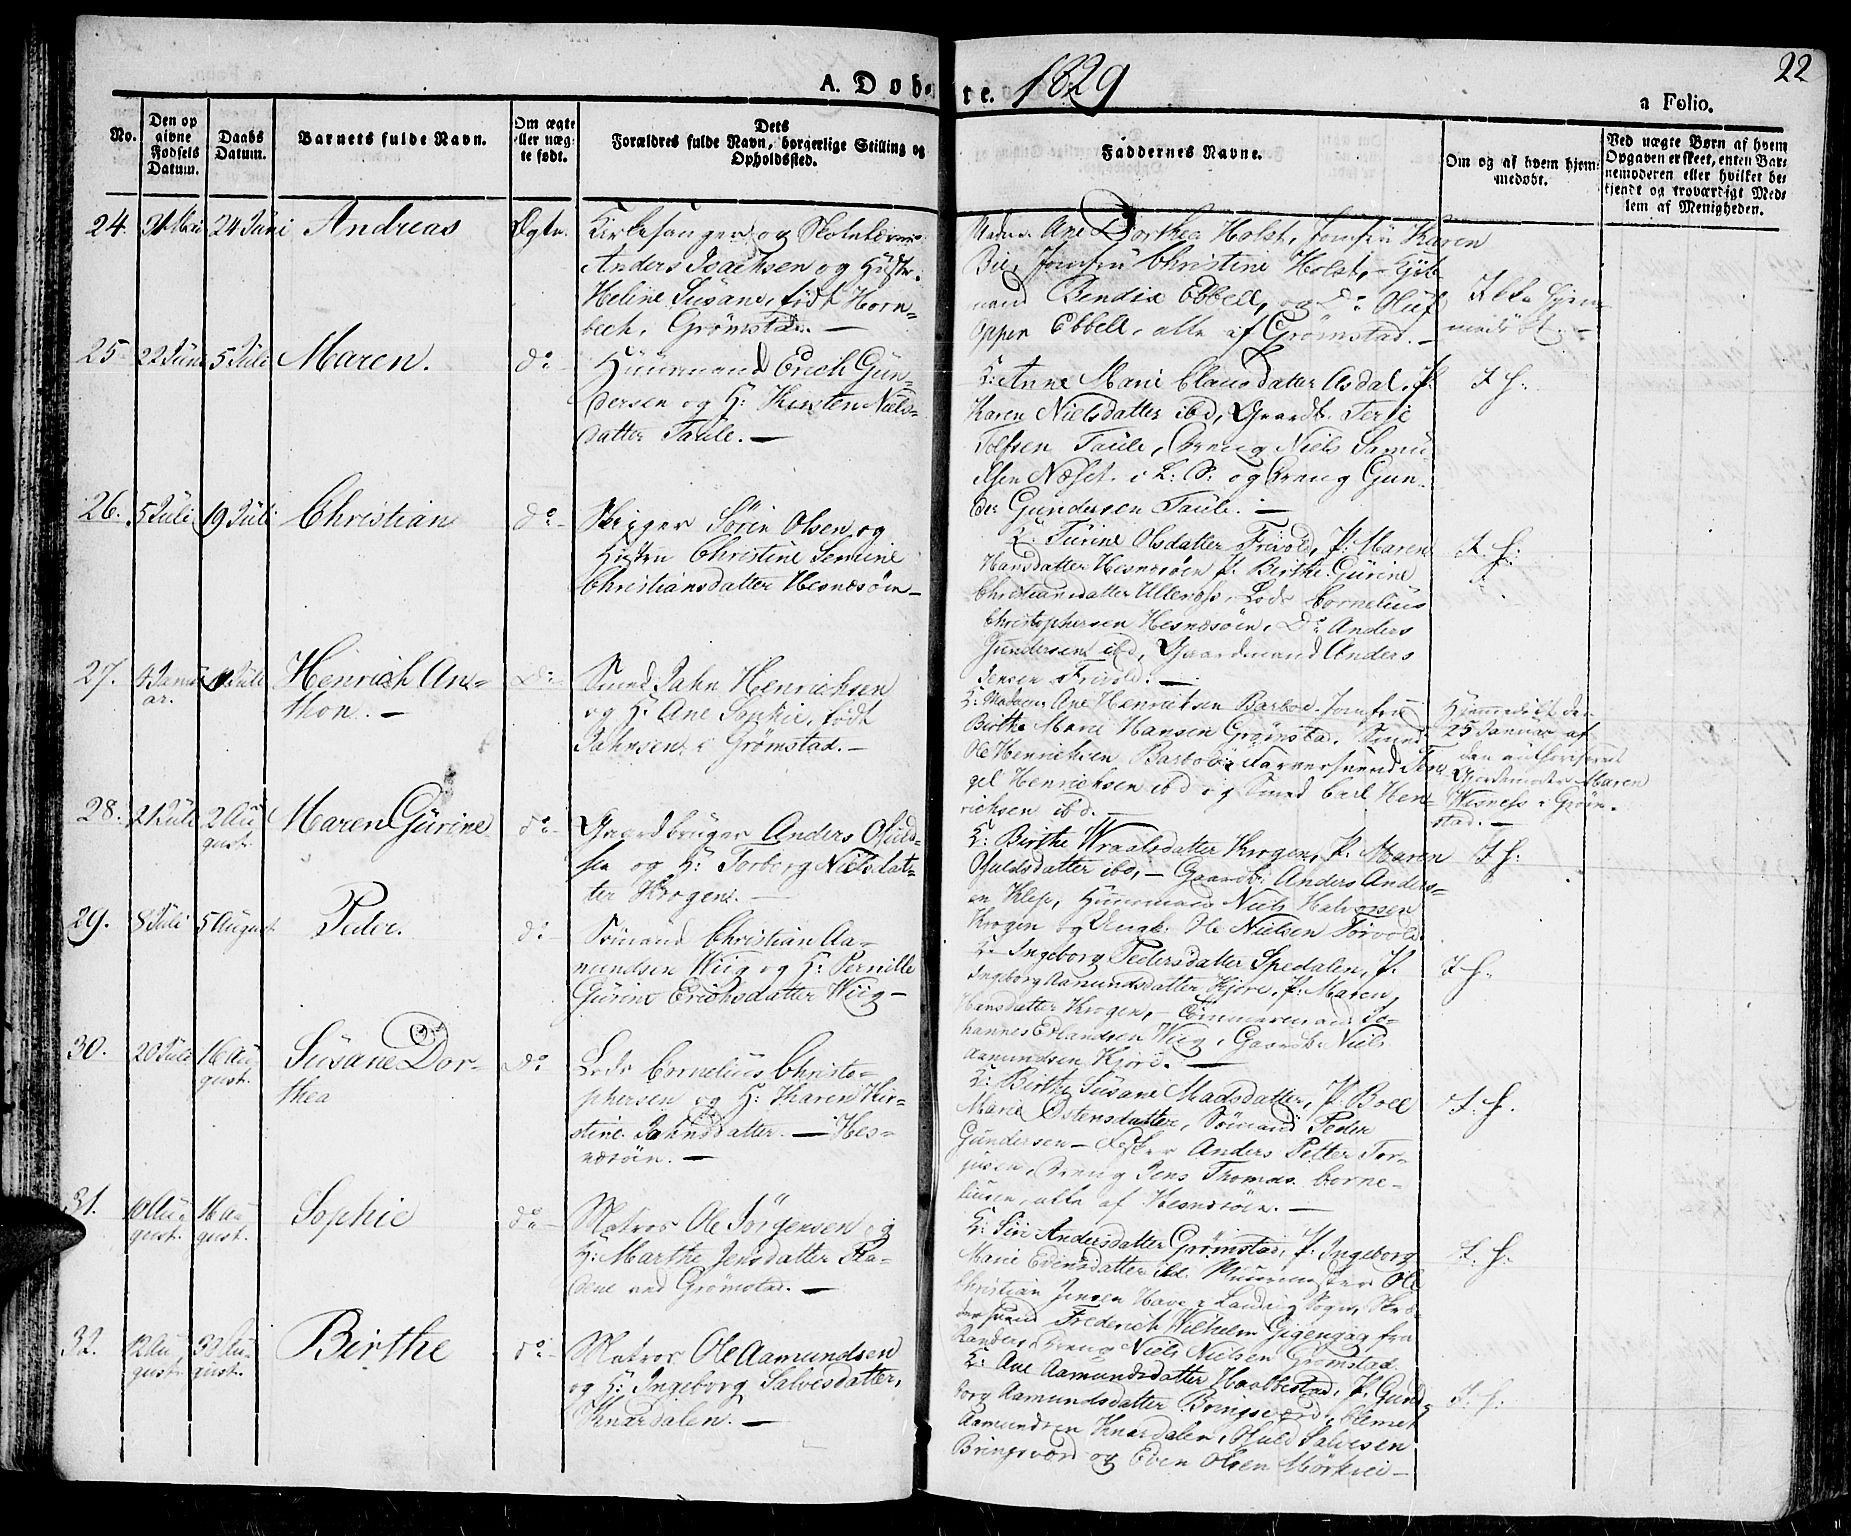 22
A. Døbte. 1829
a Folio.
No.
Den op
givne
Fødsels
Datum.
Daabs
Datum.
Barnets fulde Navn.
Om ægte
eller uæg-
te født.
Dets
Forældres fulde Navn, borgerlige Stilling og
Opholdssted.
Faddernes Navne.
Om og af hvem hjem-
medøbt.
Ved uægte Børn af hvem
Opgaven er skeet, enten Bar-
nemoderen eller hvilket be-
kjendt og troværdigt Med-
lem af Menigheden.
24. 24 Juni Andreas Ægte.
Kirkesanger og Skolelærer
Anders Isachsen og Hustr.
Heline Susane, født Horn-
bech, Grømstad. —
Madm. Ane Dorthea Holst, Jomfru Karen
Bie, Jomfru Christine Holst, Kjøb-
mand Bendix Ebbell, og Do Oluf
Oppen Ebbell, alle af Grømstad. —
Ikke hjem-
medøbt. —
25 22 Juni 5 Juli Maren. do
Huusmand Erich Gun-
dersen og H: Kirsten Niels-
datter Taule. —
K: Anne Marie Clausdatter Asdal, P.
Karen Nielsdatter ibd, Gaardb. Terje
Tolfsen Taule, Dreng Niels Samu-
elsen Næset i L: S: og Dreng Gun-
der Gundersen Taule. —
I h.
26. 5 Juli 19 Juli Christian do
Skipper Søren Olsen og
Hustru Christine Semine
Christiansdatter Hesnesøen —
K: Turine Olsdatter Frivold, P: Maren
Hansdatter Hesnesøen P. Birthe Gurine
Christiansdatter Ullenæs, Lods Cornelius
Christophersen Hesnesøen, Do Anders
Gundersen ibd, Gaardmand Anders
Jensen Frivold. —
I. h.
27. Janu-
ar. Juli Henrich An-
thon. — Do
Smed Jahn Henrichsen
og H: Ane Sophie, født
Jahnsen i Grømstad. —
K: Madam Ane Henrichsen Barboe, Jomfru
Birthe Marie Hansen Grømstad, Smed
Ole Henrichsen Barboe, Farversvend Ten-
gel Henrichsen ibd og Smed Carl Hen-
richsen ibd. —
Hjemmedøbt den
25 Januar af
den authoriserede
Gjordemoder Maren
Wesness i Grøm-
stad. —
28. 21 Juli 2 Au-
gust. Maren Gurine do
Gaardbruger Anders Ofuld-
sen og H: Torborg Nielsdat-
ter Krogen. —
K: Birthe Wraalsdatter Krogen, P: Maren
Ofuldsdatter ibd, — Gaardb: Anders Anders-
en Klep, Huusmand Niels Halvorsen
Krogen og Ungk. Ole Nielsen Førvold
I h.
29. 8 Juli 5 August Peder. do
Sømand Christian Aa-
mundsen Wiig og H: Pernille
Gurine Erichsdatter Wiig —
K: Ingeborg Pedersdatter Spedalen, P.
Ingeborg Aamundsdatter Kjøre, P: Maren
Hansdatter Krogen, — Tømmermand Jo-
hannes Erlandsen Wiig, Gaardb. Niels
Aamundsen Kjøre. —
I h.
30. 20 Juli 16 Au-
gust. Susane Dor-
thea do
Lods Cornelius Christo-
phersen og H: Karen Kir-
stine Jahnsdatter. — Hes-
nesøen. —
K: Birthe Susane Madsdatter, P: Boel
Marie Ostensdatter, Sømand Peder
Gundersen — Fisker Anders Petter Tor-
jusen, Dreng Jens Thomas Corne-
liusen, alle af Hesnesøen. —
I. h.
31. 10 Au-
gust. 16 Au-
gust. Sophie do
Matros Ole Jørgensen og
H: Marthe Jensdatter Fla-
dene ved Grømstad. —
K: Siri Andersdatter Grømstad, P. Ingeborg
Marie Edensdatter ibd. Muurmester Ole
Christian Jensen Have i Landvig Sogn, Skræ-
dersvend Frederich Wilhelm Gigengag fra
Randers, Dreng Niels Nielsen Grømstad.
I. h.
32. 12 Au-
gust. 30 Au-
gust. Birthe do
Matros Ole Aamundsen
og H: Ingeborg Salvesdatter,
Knardalen. —
K: Ane Aamundsdatter Haabbestad, P. Gun-
borg Aamundsdatter Bringsværd, Clemet
Aamundsen Knardalen, Ofuld Salvesen
Bringsværd og Even Olsen Mørkvei —
I. h.